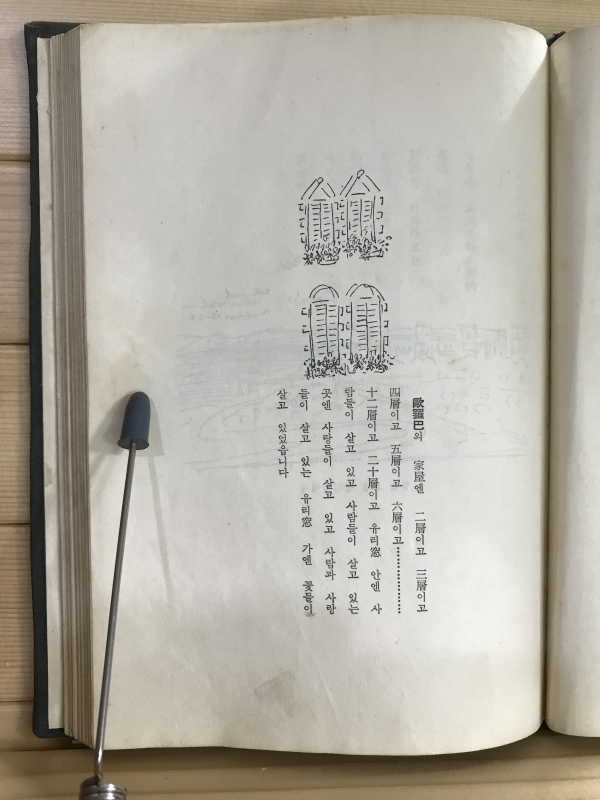 歐羅巴의 家屋엔 二層이고 三層이고
四層이고 五層이고 六層이고…………………
十二層이고 二十層이고 유리窓 안엔 사
람들이 살고 있고 사람들이 살고 있는
곳엔 사랑들이 살고 있고 사람과 사랑
들이 살고 있는 유리窓 가엔 꽃들이
살고 있었읍니다